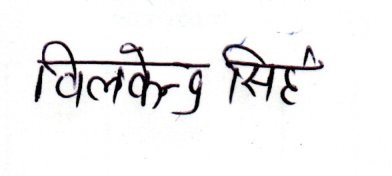 विलकेन्द्र सिहं